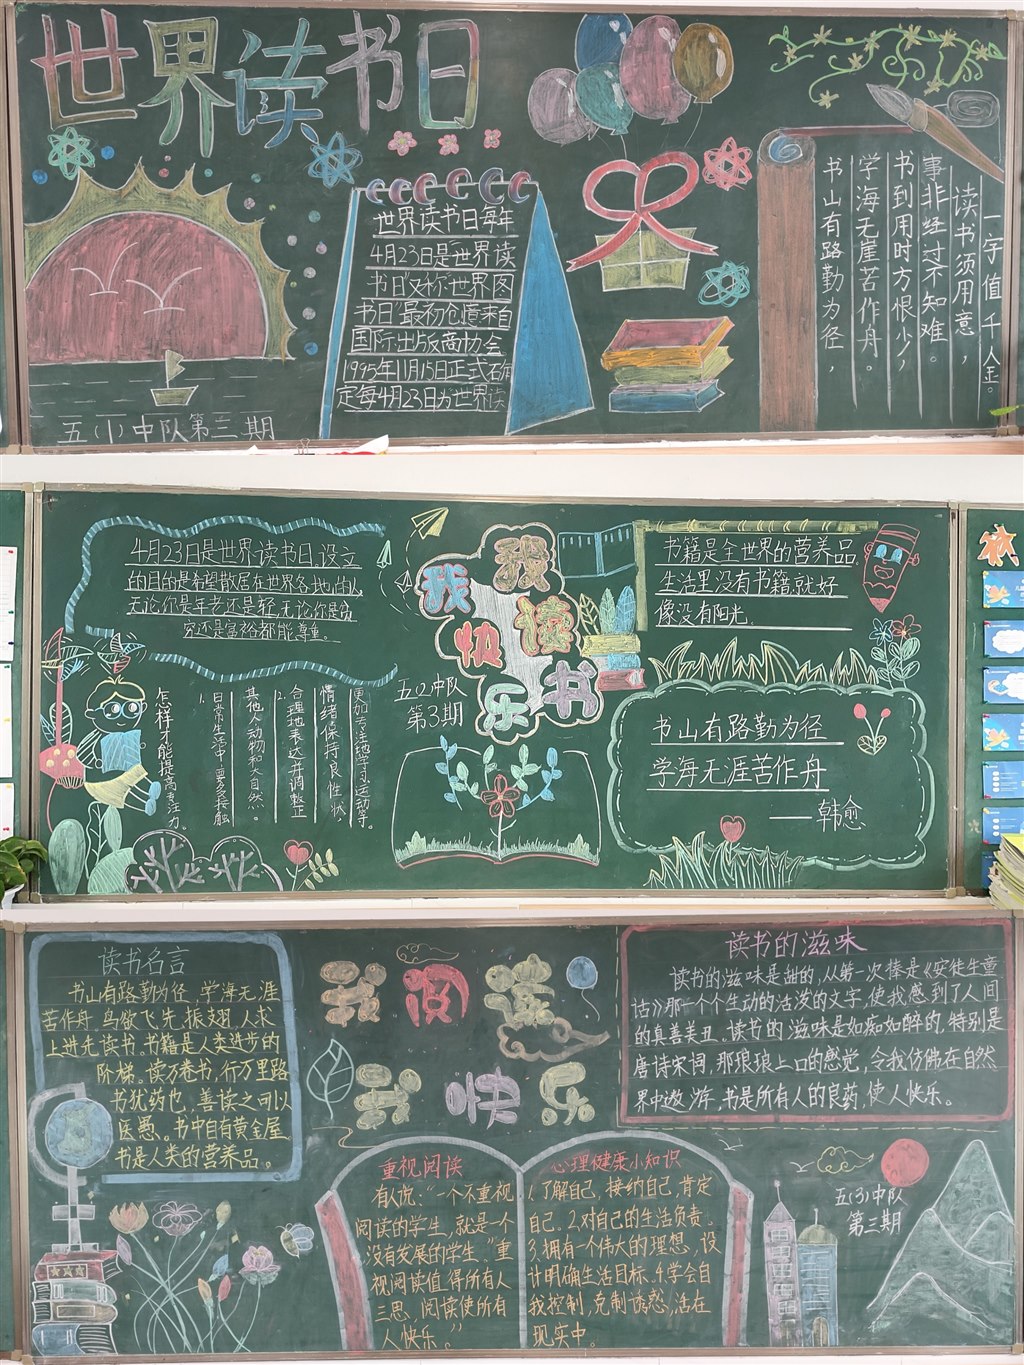 世界读书日
世界读书日每年
4月23日是“世界读
书日”又称“世界图
书日”最初创意来自
国际出版商协会
1995年11月15日正式确
定每4月23日为世界读
五(1)中队第三期
一字值千金。
读书须用意，
事非经过不知难。
书到用时方恨少，
学海无崖苦作舟。
书山有路勤为径，
4月23日是世界读书日,设立
的目的是希望散居在世界各地的人
无论你是年老还是年轻,无论你是贫
穷还是富裕都能尊重。
我读书
我快乐
五(2)中队
第3期
书籍是全世界的营养品,
生活里没有书籍,就好
像没有阳光.
书山有路勤为径
学海无涯苦作舟
——韩愈
怎样才能提高注意力。
1.日常生活中要多接触
其他人动物和大自然。
2.合理地表达并调整正
情绪保持良性状
更加专注地学习运动等。
读书名言
书山有路勤为径,学海无涯
苦作舟.鸟欲飞先振翅,人求
上进先读书.书籍是人类进步的
阶梯.读万卷书,行万里路
书犹药也,善读之可以
医愚。书中自有黄金屋.
书是人类的营养品。
我阅读
我快乐
读书的滋味
读书的滋味是甜的,从第一次捧是《安徒生童
话》那一个个生动的活泼的文字,使我感到了人间
的真善美丑.读书的滋味是如痴如醉的,特别是
唐诗宋词,那琅琅上口的感觉,令我仿佛在自然
界中遨游,书是所有人的良药,使人快乐。
重视阅读
有人说:“一个不重视
阅读的学生,就是一个
没有发展的学生.”重
视阅读值得所有人
三思,阅读使所有
人快乐。”
心理健康小知识
1.了解自己,接纳自己,肯定
自己.2.对自己的生活负责.
3.拥有一个伟大的理想,设
计明确生活目标.4.学会自
我控制,克制诱惑,活在
现实中.
五(3)中队
第三期